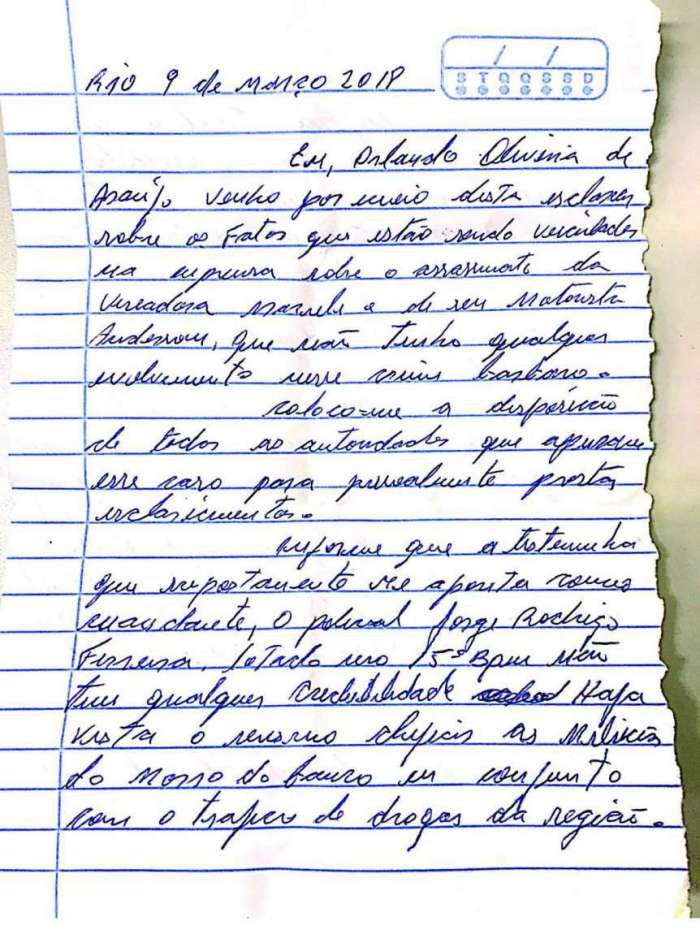 Rio 9 de março 2018
/ /
S T Q Q S S D
Eu, Orlando Oliveira de
Araújo venho por meio desta esclarecer
sobre os Fatos que estão sendo veiculados
na imprensa sobre o assassinato da
vereadora Marielle e de seu Motorista
Anderson, que não tenho qualquer
envolvimento nesse crime barbaro.
coloco-me a disposição
de todas as autoridades que apuram
esse caso para pessoalmente prestar
esclarecimentos.
informe que a testemunha
que supostamente me aponta como
mandante, o policial Jorge Rodrigo
Ferreira, lotado no 15º Bpm não
tem qualquer credibilidade Haja
vista o mesmo chefiar as Milícias
do Morro do banco em conjunto
com o trafico de drogas da região.